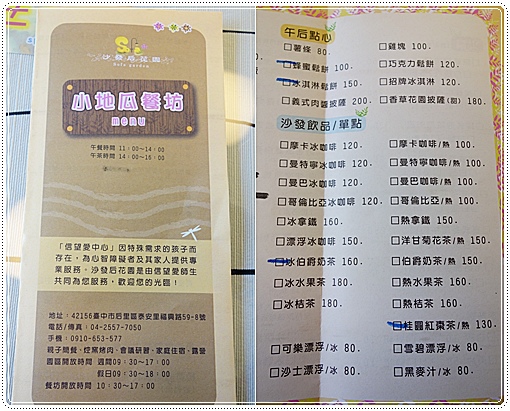 Sofa garden
沙發后花園
小地瓜餐坊
menu
午餐時間 11：00～14：00
午茶時間 14：00～16：00
「信望愛中心」因特殊需求的孩子而
存在，為心智障礙者及其家人提供專
業服務。沙發后花園是由信望愛師生
共同為您服務，歡迎您的光臨！
地址：42156臺中市后里區泰安里福興路59-8號
電話/傳真：04-2557-7050
手機：0910-653-577
親子簡餐、焢窯烤肉、會議研習、家庭住宿、露營
園區開放時間 週間09：30～17：00
假日09：30～18：00
餐坊開放時間 10：30～17：00
午后點心
□薯條 80.
□雞塊 100.
□蜂蜜鬆餅 100.
□巧克力鬆餅 120.
□冰淇淋鬆餅 150.
□招牌冰淇淋 120.
□義式肉醬披薩 200.
□香草花園披薩(甜) 180.
沙發飲品/單點
□摩卡冰咖啡 120.
□摩卡咖啡/熱 100.
□曼特寧冰咖啡 120.
□曼特寧咖啡/熱 100.
□曼巴冰咖啡 120.
□曼巴咖啡/熱 100.
□哥倫比亞冰咖啡 120.
□哥倫比亞/熱 100.
□冰拿鐵 160.
□熱拿鐵 150.
□漂浮冰咖啡 150.
□洋甘菊花茶/熱 150.
□冰伯爵奶茶 160.
□伯爵奶茶/熱 150.
□冰水果茶 180.
□熱水果茶 160.
□冰桔茶 180.
□熱桔茶 160.
□桂圓紅棗茶/熱 130.
□可樂漂浮/冰 80.
□雪碧漂浮/冰 80.
□沙士漂浮/冰 80.
□黑麥汁/冰 80.